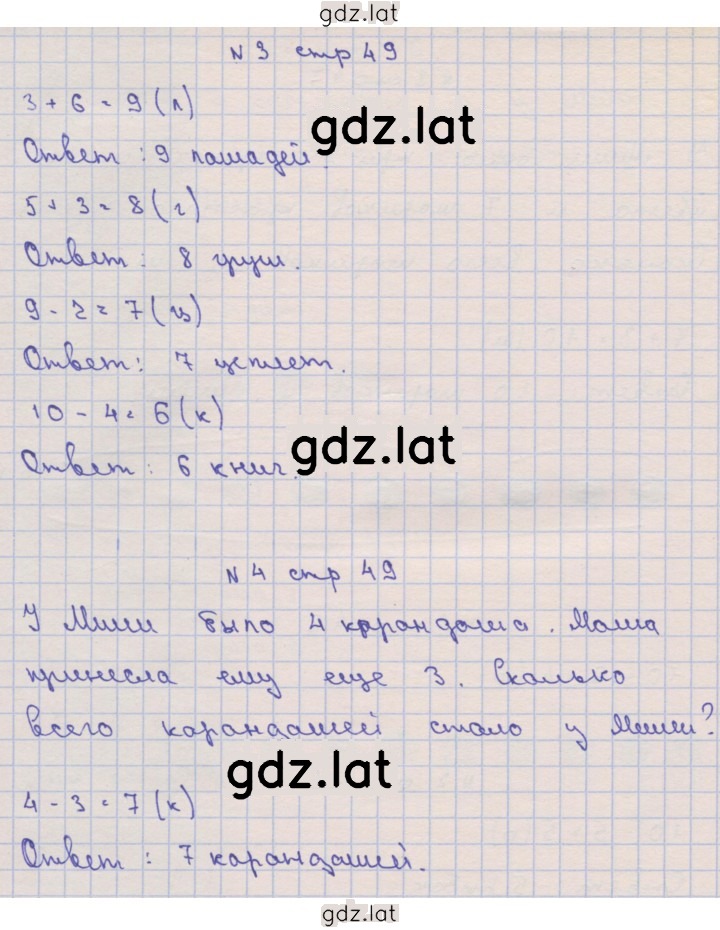 gdz.lat
N 3 стр 49
3 + 6 = 9 (л)
gdz.lat
Ответ : 9 лошадей.
5 + 3 = 8 (г)
Ответ : 8 груш.
9 - 2 = 7 (ц)
Ответ : 7 цыплет.
10 - 4 = 6 (к)
gdz.lat
Ответ : 6 книг.
N 4 стр 49
У Миши было 4 карандаша. Маша
принесла ему еще 3. Сколько
всего карандашей стало у Миши?
gdz.lat
4 - 3 = 7 (к)
Ответ : 7 карандашей.
gdz.lat